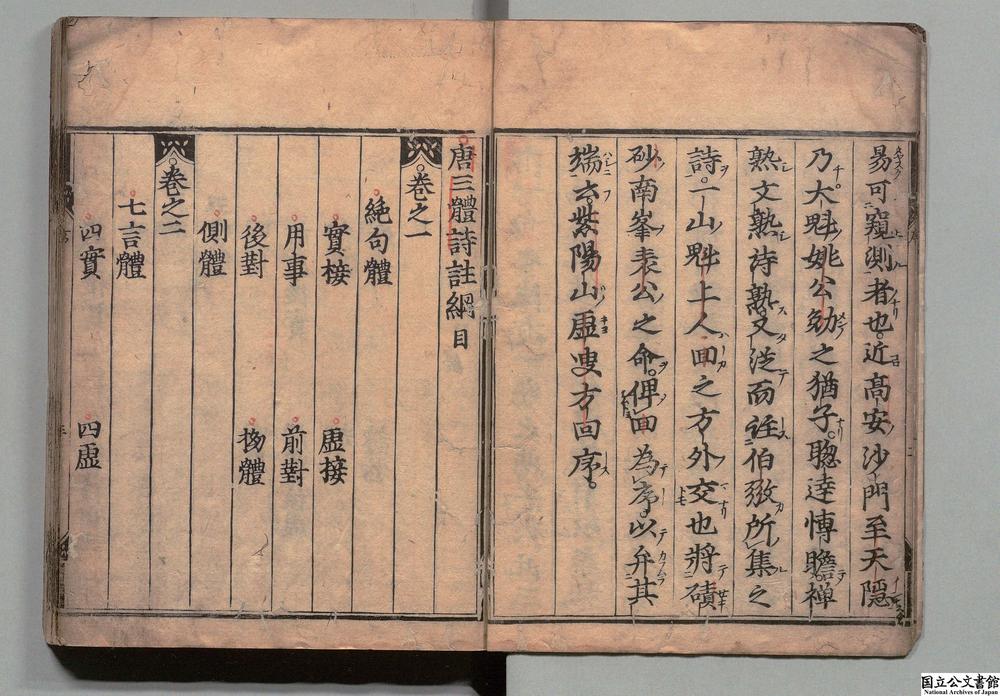 易可窺測者也近髙安沙門至天隱
乃大魁姚公勉之猶子聰達博贍禅
熟文熟詩熟又從而註伯弜所集之
詩一山魁上人回之方外交也將磧
砂南峯袁公之命俾回為序以弁其
端云紫陽山虛叟方回序
唐三體詩註綱目
卷之一
絶句體
實接 虛接
用事 前對
後對 拗體
側體
卷之二
七言體
四實 四虛
国立公文書館
National Archives of Japan